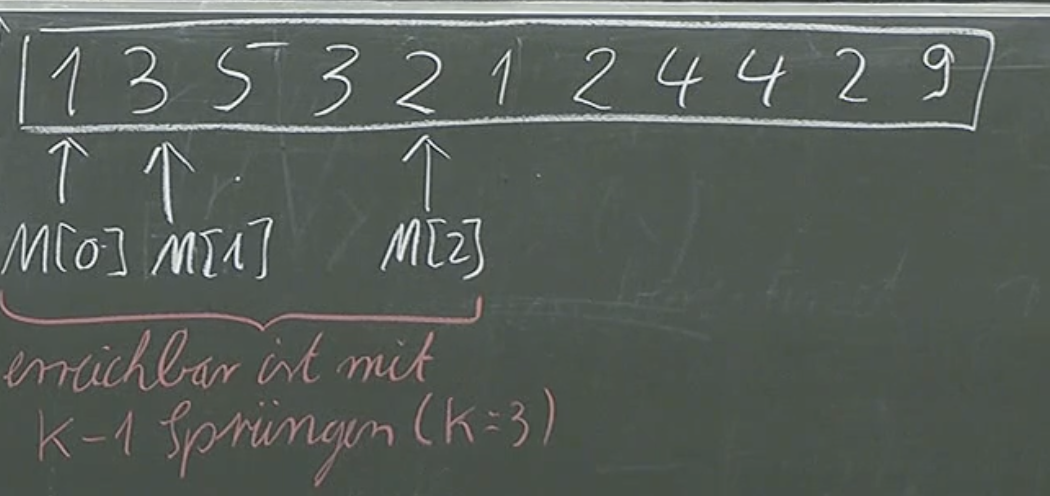 1 3 5 3 2 1 2 4 4 2 9
M[0] M[1] M[2]
erreichbar ist mit
K-1 Sprüngen (K=3)